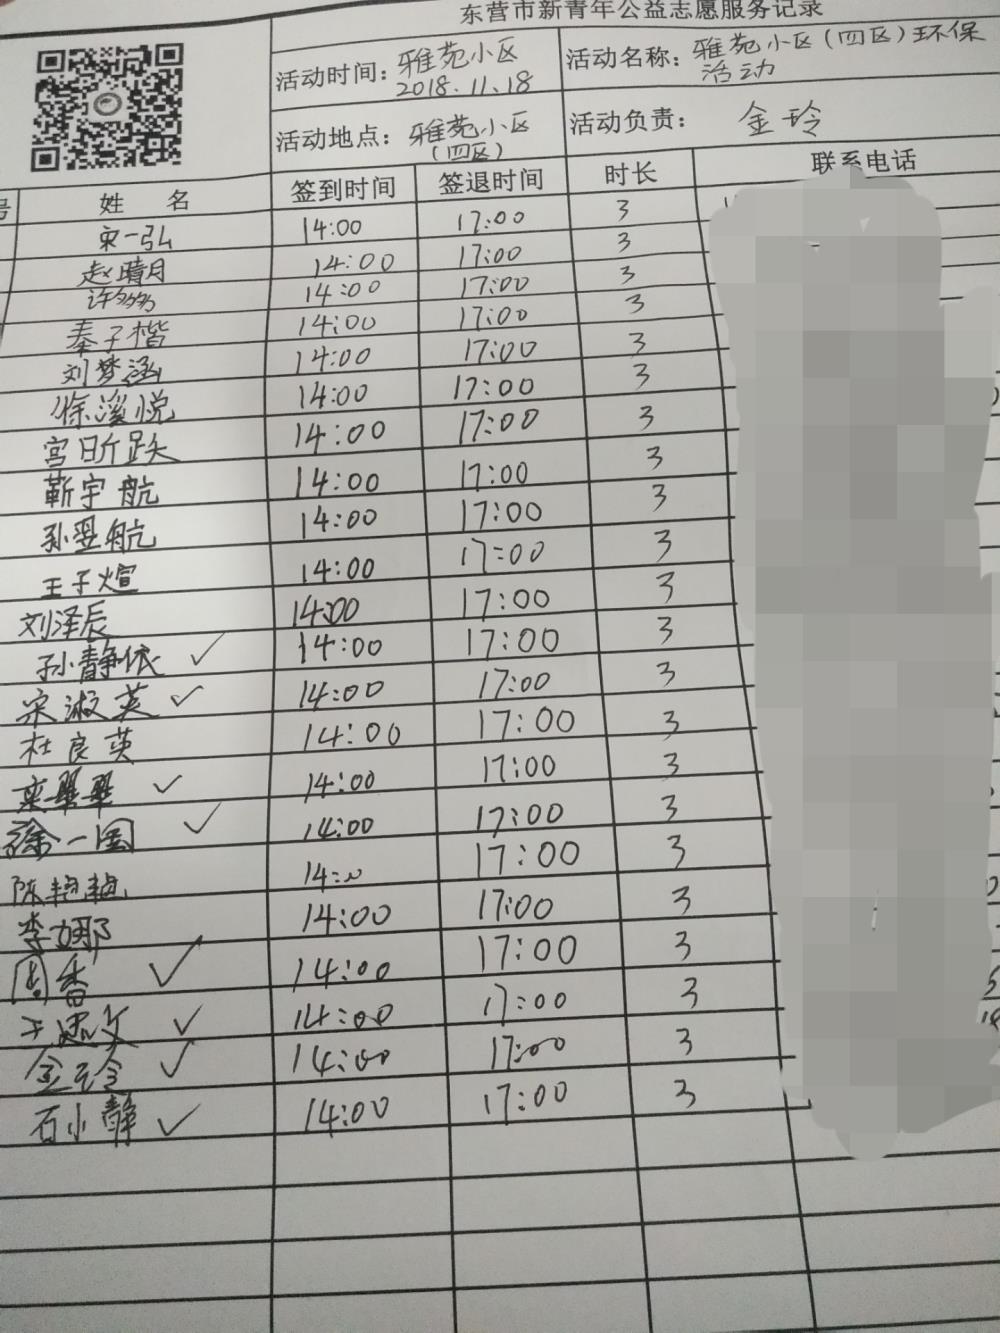 东营市新青年公益志愿服务记录
活动时间: 雅苑小区 2018.11.18 活动名称: 雅苑小区(四区)环保活动
活动地点: 雅苑小区(四区) 活动负责: 金玲
号 姓 名 签到时间 签退时间 时长 联系电话
宋一弘 14:00 17:00 3
赵晴月 14:00 17:00 3
许多多 14:00 17:00 3
秦子楷 14:00 17:00 3
刘梦涵 14:00 17:00 3
徐溪悦 14:00 17:00 3
宫昕跃 14:00 17:00 3
靳宇航 14:00 17:00 3
孙翌航 14:00 17:00 3
王子煊 14:00 17:00 3
刘泽辰 14:00 17:00 3
孙静依 ✓ 14:00 17:00 3
宋淑英 ✓ 14:00 17:00 3
杜良英 14:00 17:00 3
栾翠翠 ✓ 14:00 17:00 3
徐一国 ✓ 14:00 17:00 3
陈艳艳 14:00 17:00 3
李娜 14:00 17:00 3
周香 ✓ 14:00 17:00 3
✓ 14:00 17:00 3
金玲 ✓ 14:00 17:00 3
石小静 ✓ 14:00 17:00 3